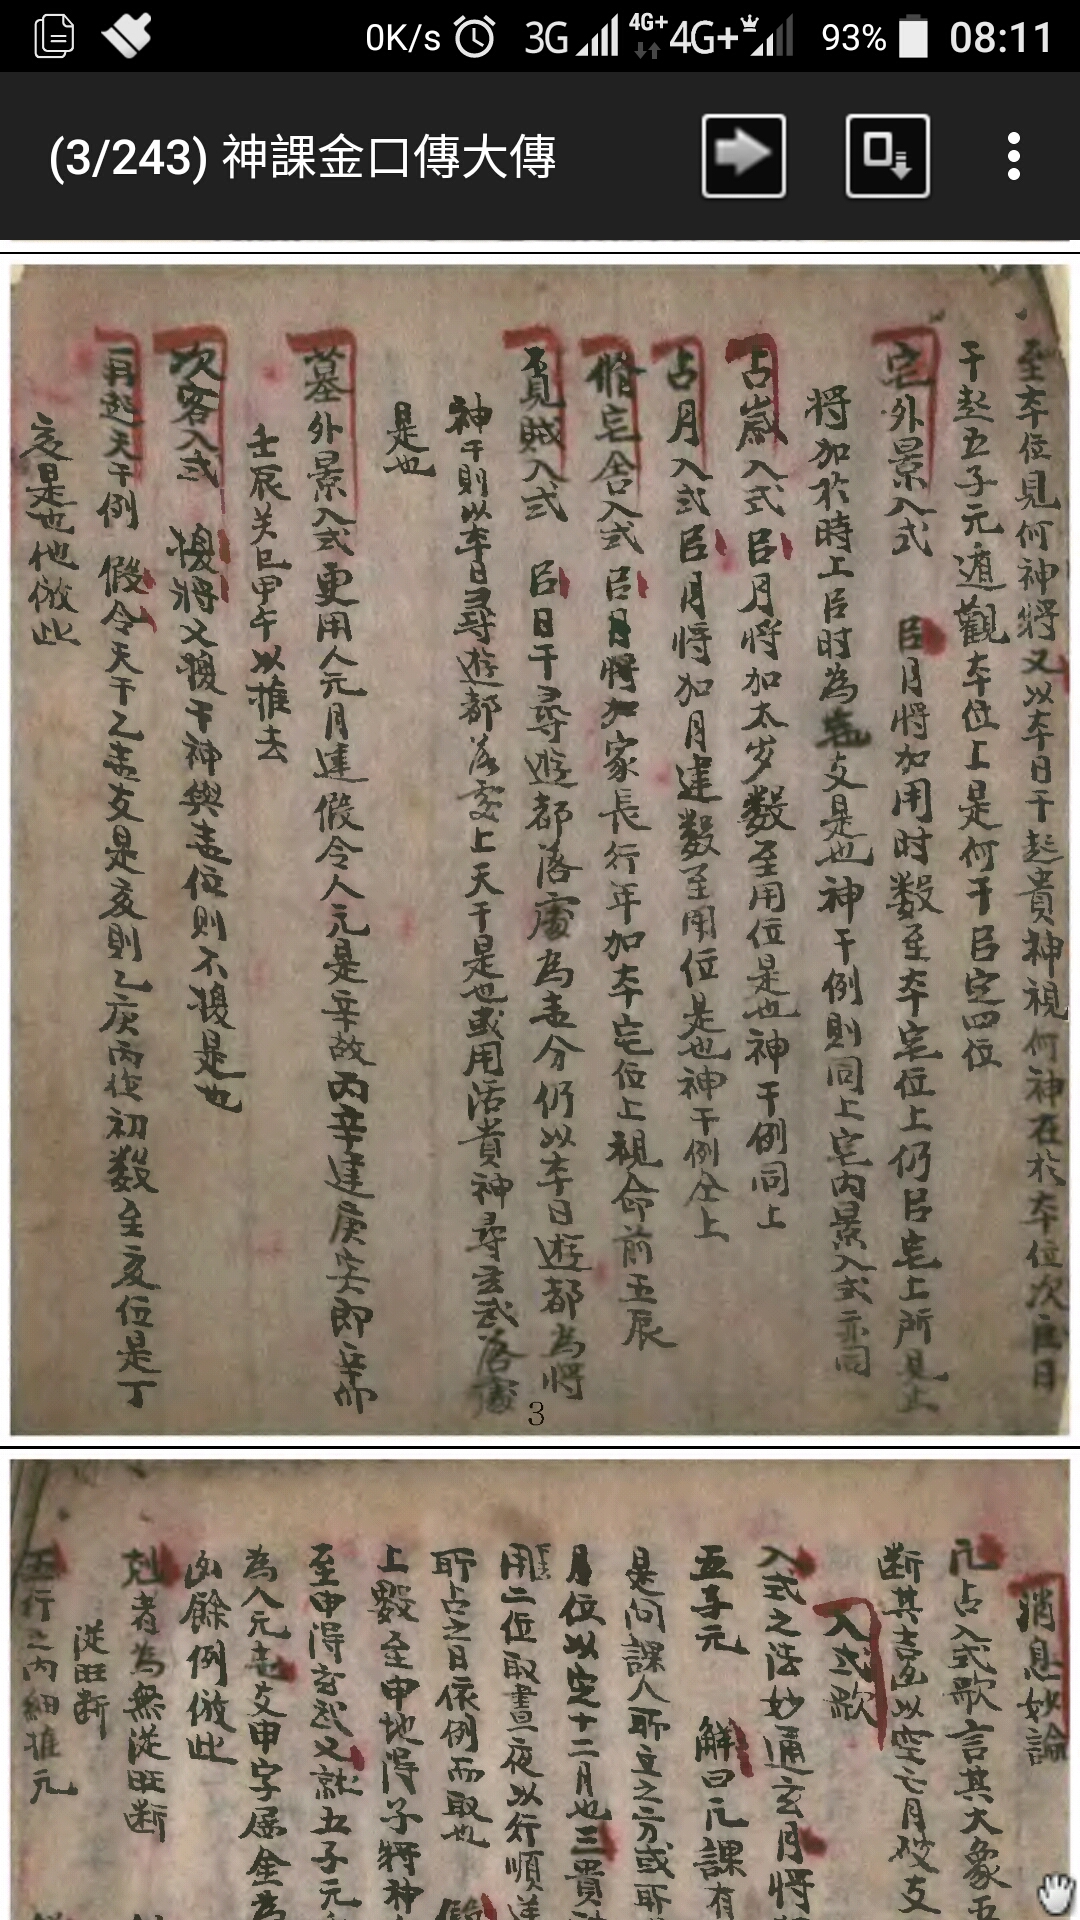 0K/s 3G 4G+ 4G+ 93% 08:11
(3/243) 神課金口傳大傳
至本位見何神將又以本日干起貴神視何神在於本位次㠯日
干起五子元遁觀本位上是何干㠯定四位
宅外景入式 㠯月將加用时数至本宅位上仍㠯宅上所見止
將加於時上㠯时為宅支是也神干例則同上宅内景入式亦同
占嵗入式㠯月將加太岁数至用位是也神干例同上
占月入式㠯月將加月建數至用位是也神干例仝上
脩宅舍入式㠯月將加家長行年加本宅位上視命前五辰
覓賊入式 㠯日干尋遊都落處為主分仍以本日遊都為將
神干則以本日尋遊都落處上天干是也或用活貴神尋玄武落處
是也
墓外景入式更用人元月建假令人元是辛故丙辛建庚寅即辛卯
壬辰癸巳甲午以推去
次客入式 換將又換干神與主位則不換是也
再起天干例 假令天干乙主支是亥則乙庚丙作初数至亥位是丁
亥是也他倣此
3
消息妙論
凡占入式歌言其大象五
断其吉凶以空亡月破支
入式歌
入式之法妙通玄月將
五子元 解曰凡課有
是问課人所立之方或所
月位以定十二月也三貴
用二位取晝夜以行順逆
所占之日依例而取也
上數至申地得子將神
至申得玄武又就五子元
為人元主支申字屬金為
凶餘例倣此
尅者為無從旺断
從旺断
五行之内細推元